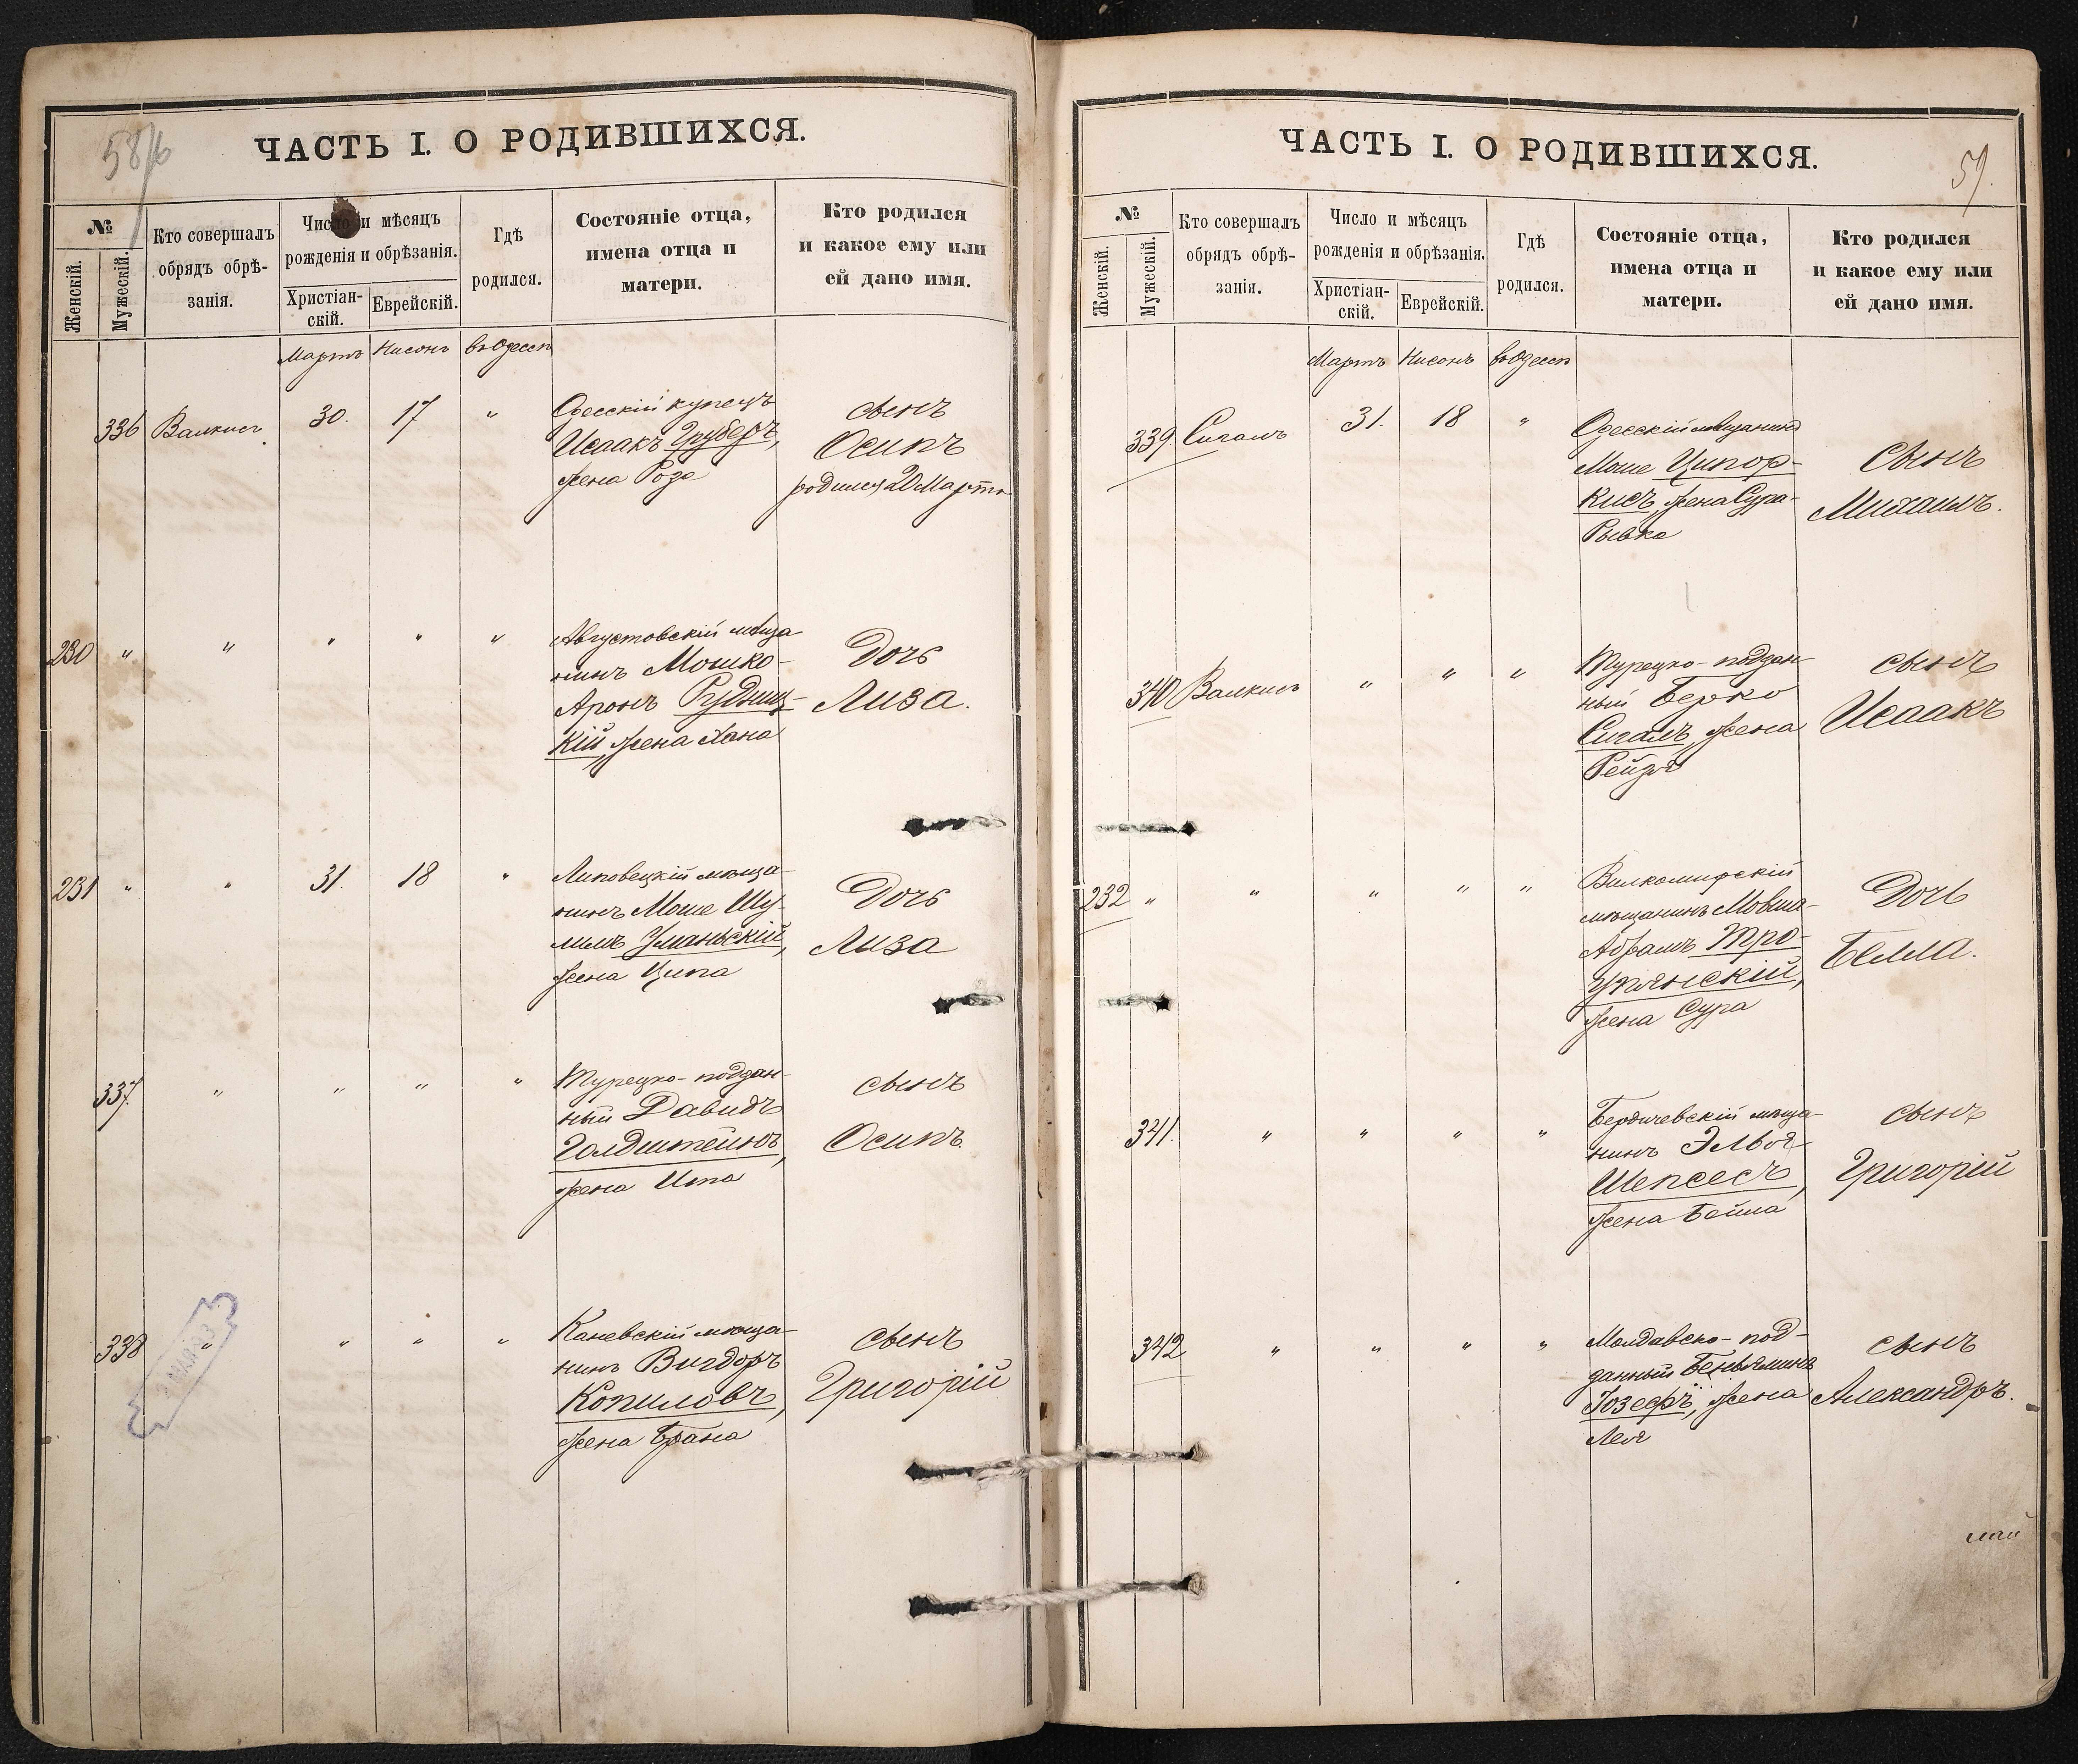 58/б
ЧАСТЬ I. О РОДИВШИХСЯ.
№
Женскій.
Мужескій.
Кто совершалъ
обрядъ обрѣ-
занія.
Число и мѣсяцъ
рожденія и обрѣзанія.
Христіан-
скій.
Еврейскій.
Гдѣ
родился.
Состояніе отца,
имена отца и
матери.
Кто родился
и какое ему или
ей дано имя.
Мартъ Нисонъ въ Одессѣ
336 Валкисъ 30. 17 "
Одесскій купецъ
Исаакъ Груберъ,
жена Роза
сынъ
Осипъ
родился 20 Марта
230 " " " " "
Августовскій мѣща
нинъ Мошко-
Аронъ Рудниц-
кій, жена Хана
Дочь
Лиза.
231 " " 31. 18 "
Липовецкій мѣща-
нинъ Моше Шу-
лимъ Уманьскій,
жена Ципа
Дочь
Лиза
337. " " " "
Турецко-поддан-
ный Давидъ
Голдштейнъ,
жена Ита
сынъ
Осипъ
338 " " " "
Каневскій мѣща-
нинъ Вигдоръ
Копиловъ,
жена Брана
сынъ
Григорій
59.
ЧАСТЬ I. О РОДИВШИХСЯ.
№
Женскій.
Мужескій.
Кто совершалъ
обрядъ обрѣ-
занія.
Число и мѣсяцъ
рожденія и обрѣзанія.
Христіан-
скій.
Еврейскій.
Гдѣ
родился.
Состояніе отца,
имена отца и
матери.
Кто родился
и какое ему или
ей дано имя.
Мартъ Нисонъ въ Одессѣ
339. Сигалъ 31. 18 "
Одесскій мѣщанинъ
Моше Ципор-
кисъ, жена Сура-
Рывка
Сынъ
Михаилъ.
340 Валкисъ " " "
Турецко-поддан
ный Берко
Сигалъ, жена
Рейзя
сынъ
Исаакъ
232 " " " " "
Вилкомирскій
мѣщанинъ Мовша-
Абрамъ Тро-
упянскій,
жена Сура
Дочь
Белла.
341. " " " "
Бердичевскій мѣща-
нинъ Эльья
Шепсесъ,
жена Бейла
сынъ
Григорій
342 " " " "
Молдавско-под-
данный Беньяминъ
Іозефъ, жена
Лея
сынъ
Александръ.